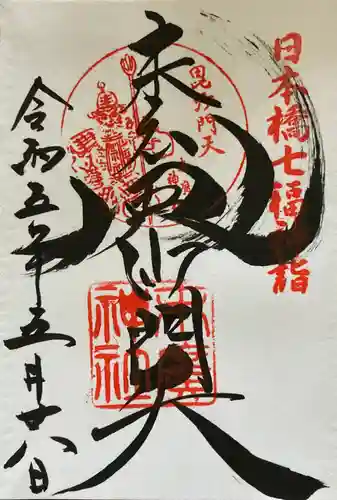 日本橋七福神詣
毘沙門天
末廣神社
毘沙門天
令和五年五月廿八日